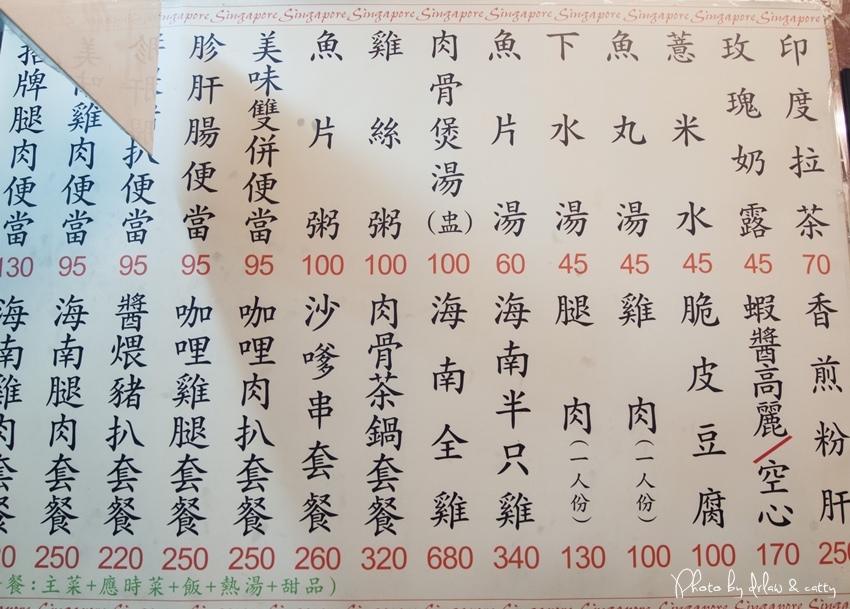 Singapore Singapore Singapore Singapore Singapore Singapore Singapore Singapore Singapore Singapore
印度拉茶 70
玫瑰奶露 45
薏米水 45
魚丸湯 45
下水湯 45
魚片湯 60
肉骨煲湯(盅) 100
雞絲粥 100
魚片粥 100
美味雙併便當 95
胗肝腸便當 95
扒便當 95
味雞肉便當 95
招牌腿肉便當 130
香煎粉肝
蝦醬高麗/空心 170
脆皮豆腐 100
雞肉(一人份) 100
腿肉(一人份) 130
海南半只雞 340
海南全雞 680
肉骨茶鍋套餐 320
沙嗲串套餐 260
咖哩肉扒套餐 250
咖哩雞腿套餐 250
醬煨豬扒套餐 220
海南腿肉套餐 250
海南雞肉套餐
餐:主菜+應時菜+飯+熱湯+甜品)
Photo by drlaw & catty